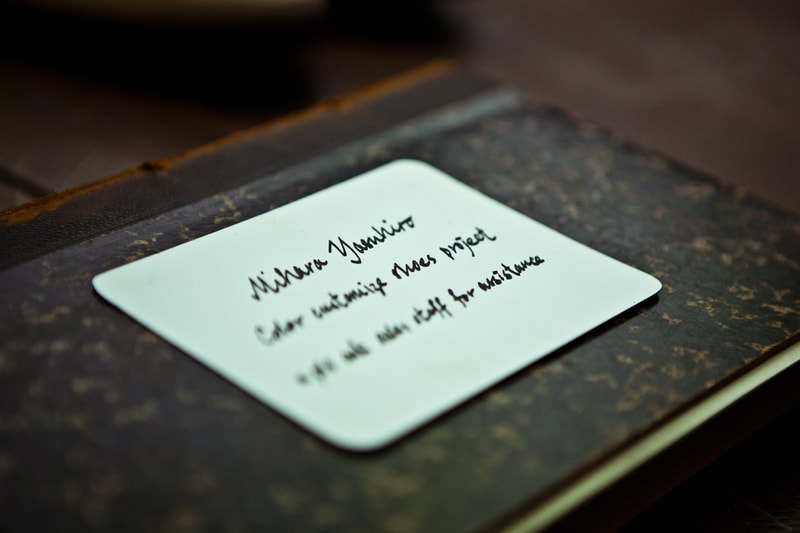 Mihara Yasuhiro
Color customize shoes project
staff for assistance